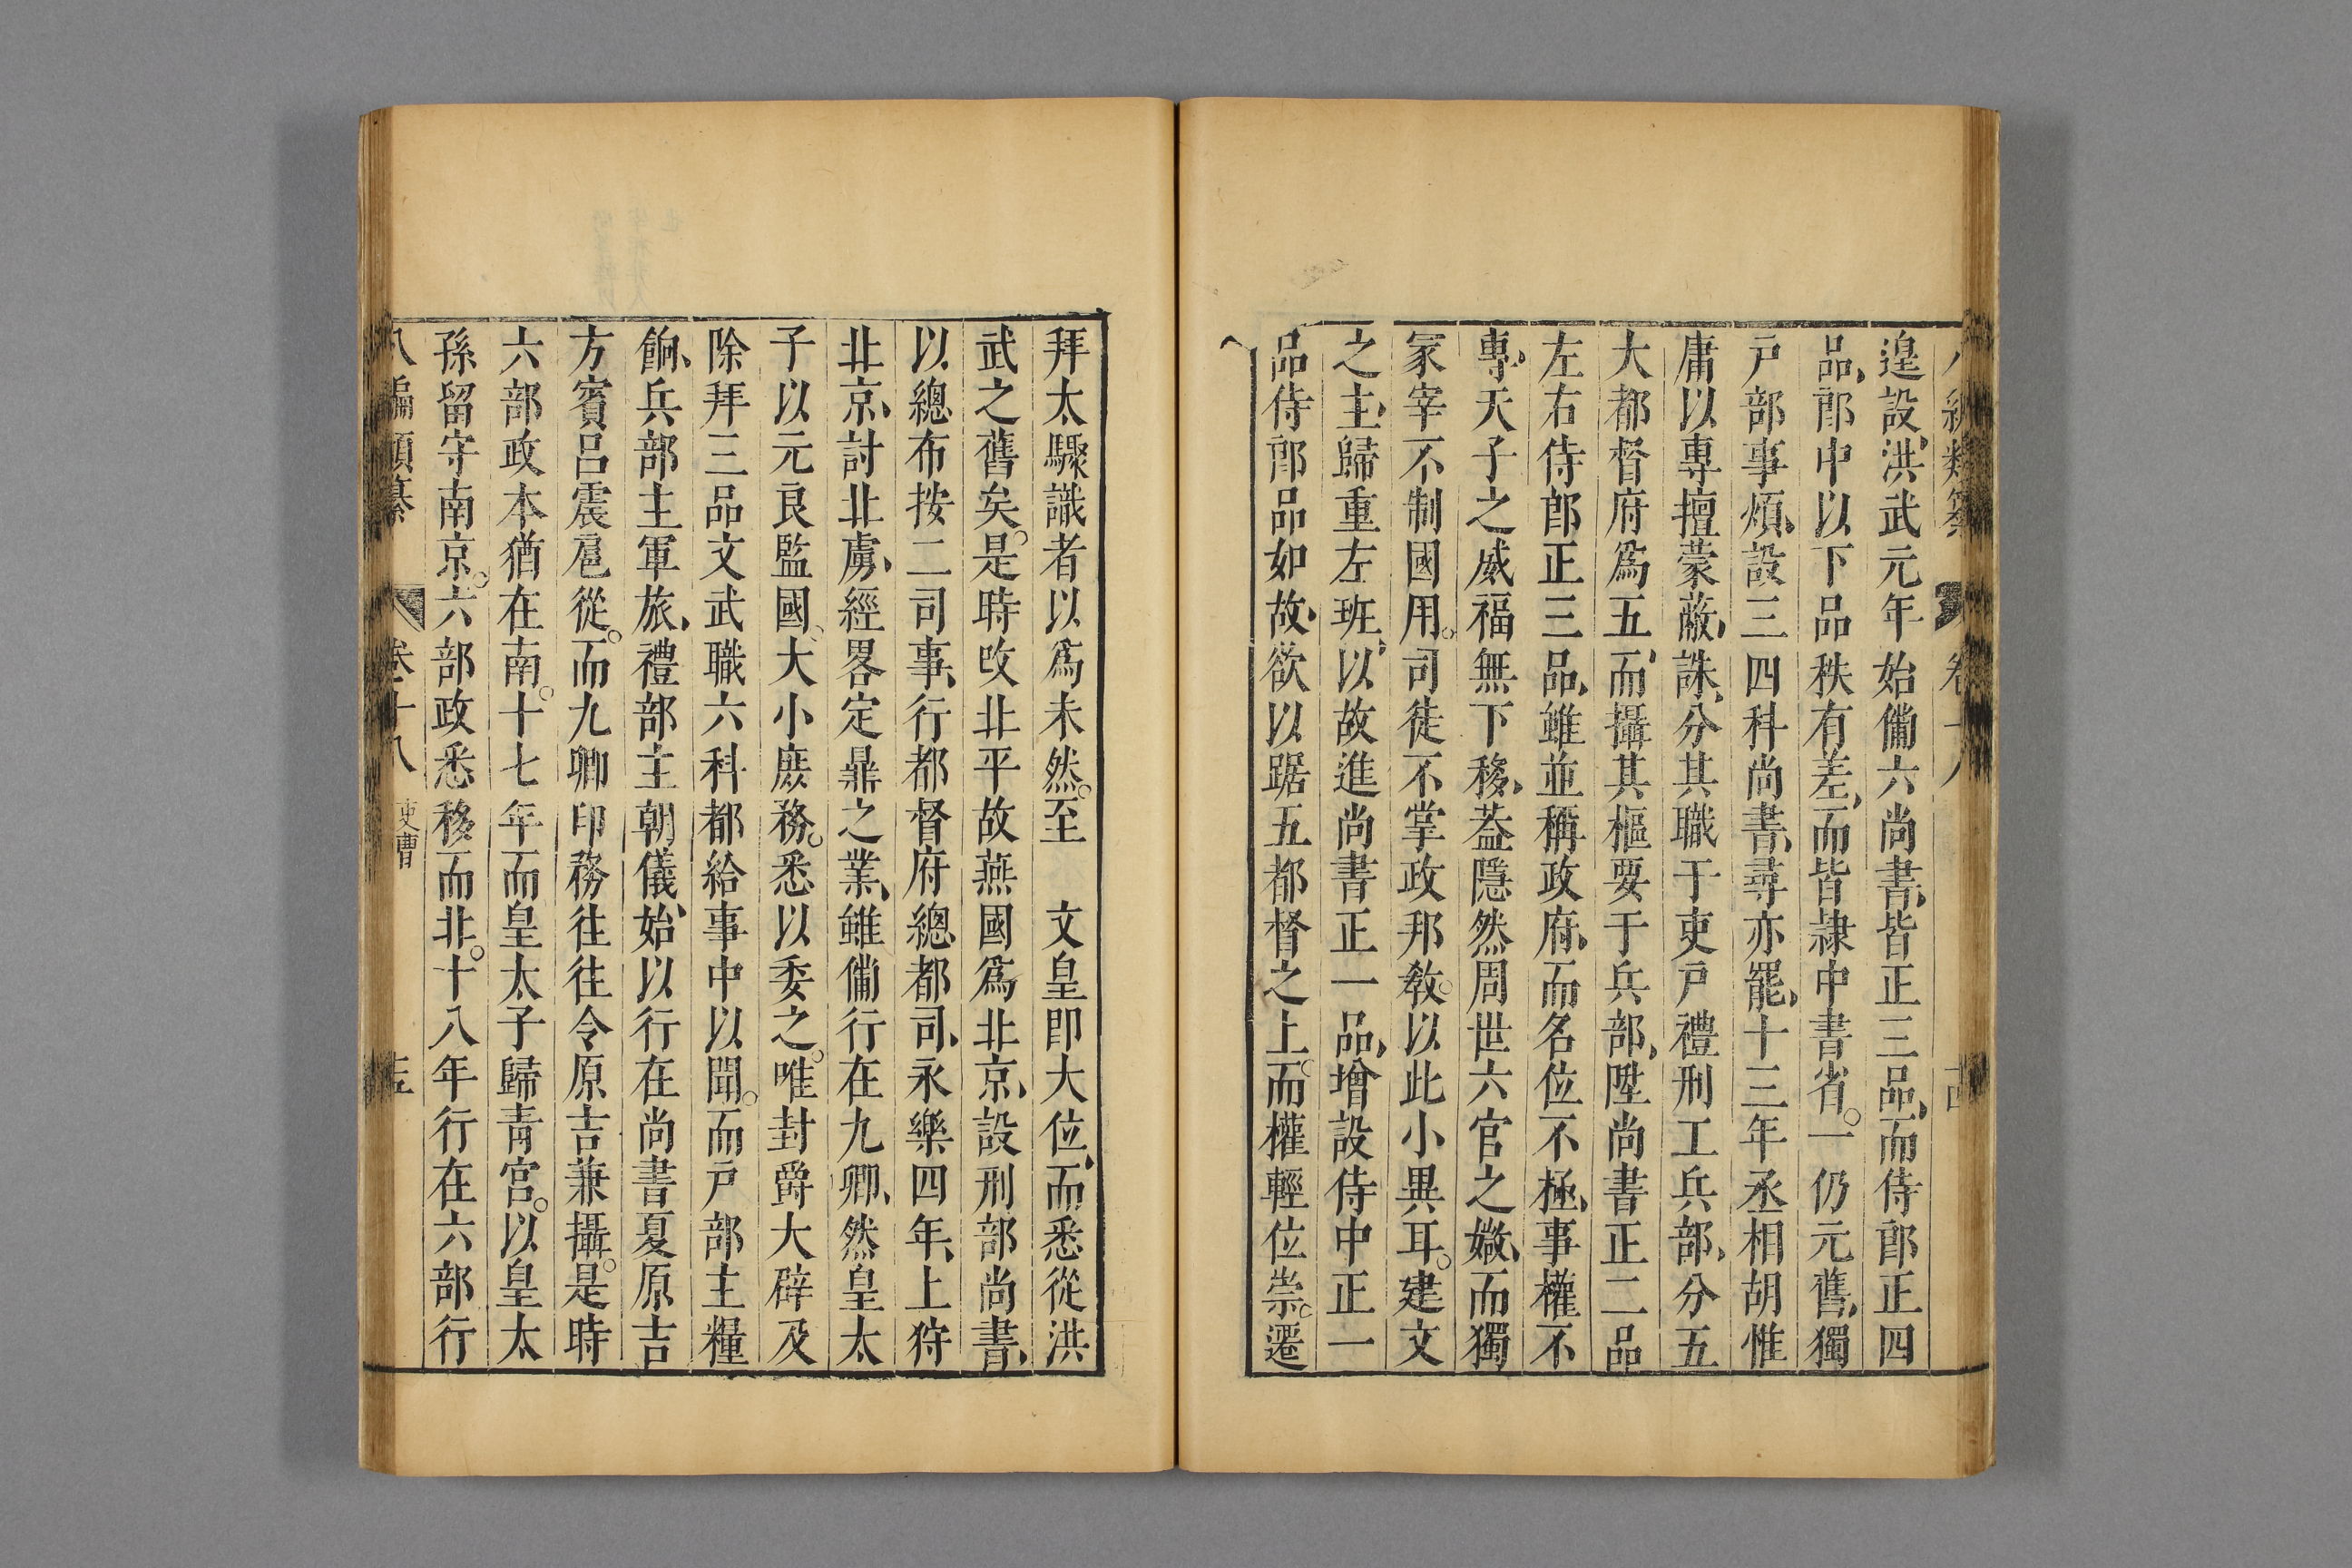 八編類纂 卷十八
遑設洪武元年始備六尚書皆正三品而侍郎正四
品郎中以下品秩有差而皆隸中書省一仍元舊獨
戸部事煩設三四科尚書尋亦罷十三年丞相胡惟
庸以專擅蒙蔽誅分其職于吏戸禮刑工兵部分五
大都督府爲五而攝其樞要于兵部陞尚書正二品
左右侍郎正三品雖並稱政府而名位不極事權不
專天子之威福無下移葢隱然周世六官之媺而獨
冢宰不制國用司徒不掌政邦教以此小異耳建文
之主歸重左班以故進尚書正一品增設侍中正一
品侍郎品如故欲以踞五都督之上而權輕位崇遷
拜太驟識者以爲未然至 文皇即大位而悉從洪
武之舊矣是時改北平故燕國爲北京設刑部尚書
以總布按二司事行都督府總都司永樂四年上狩
北京討北虜經畧定鼎之業雖備行在九卿然皇太
子以元良監國大小庶務悉以委之唯封爵大辟及
除拜三品文武職六科都給事中以聞而戸部主糧
餉兵部主軍旅禮部主朝儀始以行在尚書夏原吉
方賓呂震扈從而九卿印務往往令原吉兼攝是時
六部政本猶在南十七年而皇太子歸青宮以皇太
孫留守南京六部政悉移而北十八年行在六部行
八編類纂 卷十八 吏曹 十五